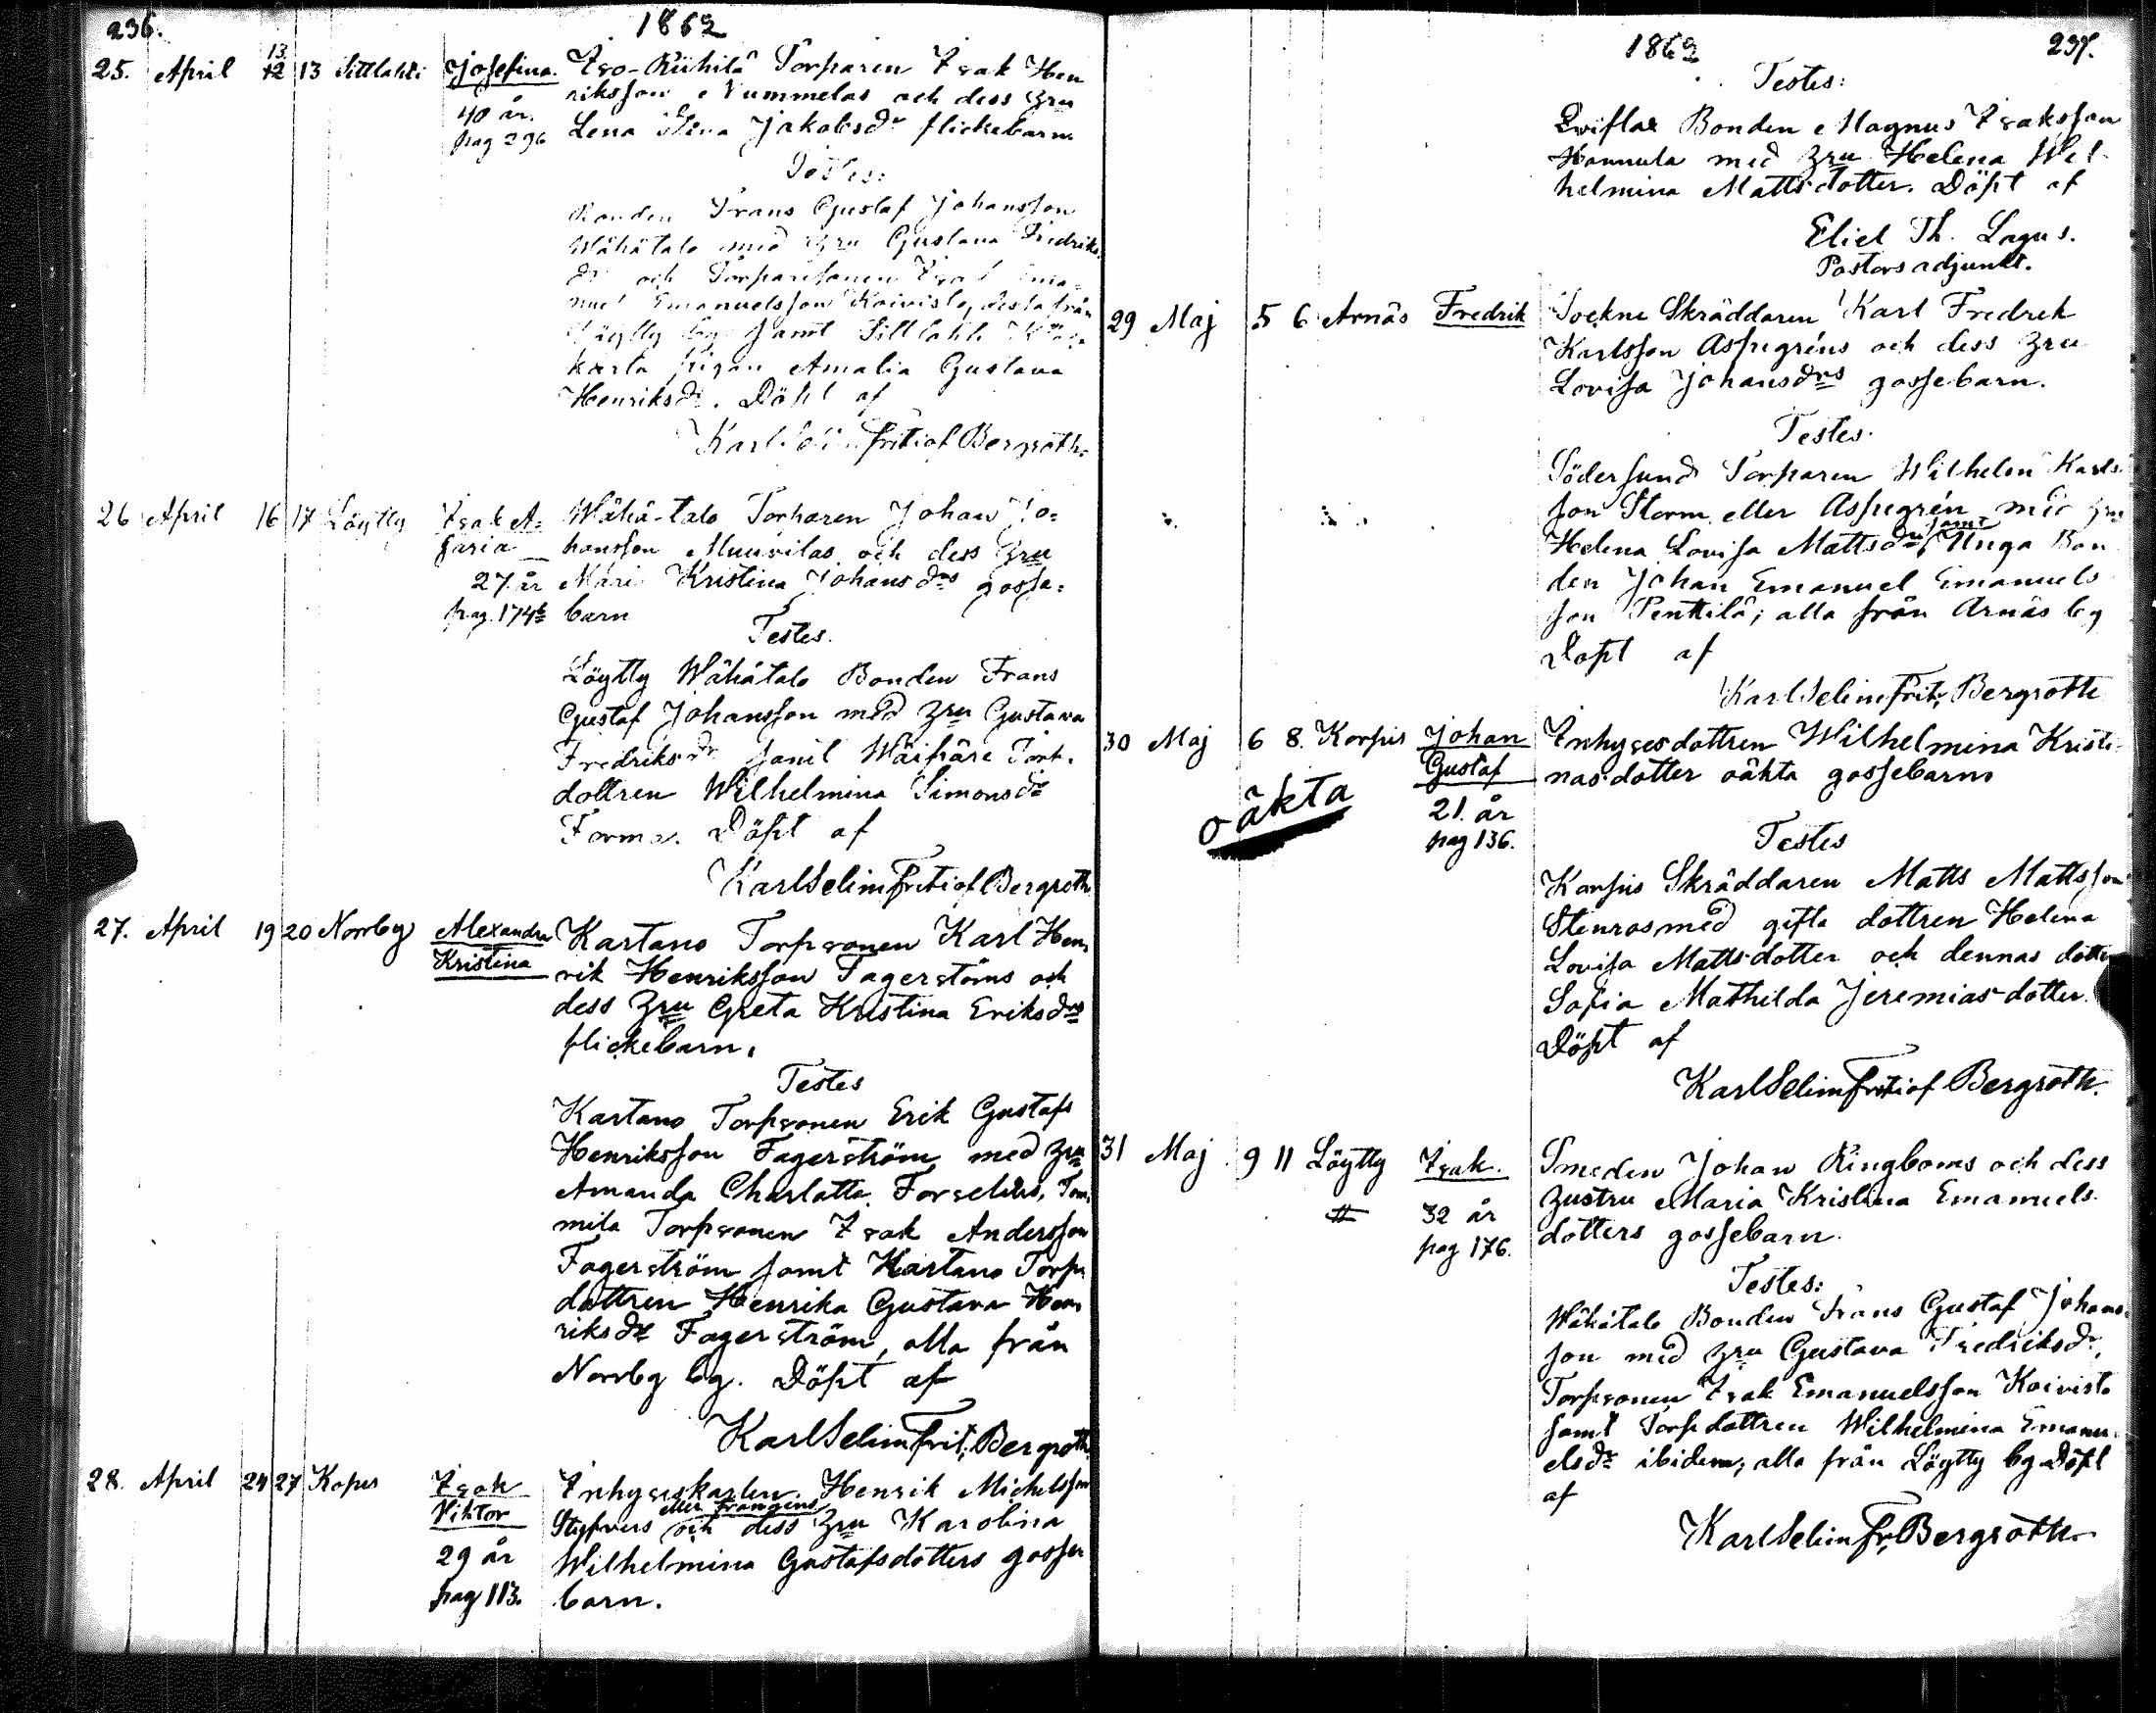 236.
1862
25. April 12 13 13 Sittlahti Josefina. Iso-Riihilä Torparen Isak Hen
riksson Nummelas och dess hru
40 år.
pag 296 Lena Stina Jakobsdr flickebarn
Testes:
Bonden Frans Gustaf Johansson
Wähätalo med hru Gustava Fredriks
dr och Torparesonen Isak Ema-
nuel Emanuelsson Koivisto, desse från
Löytty by samt Sittlahti
karta pigan Amalia Gustava
Henriksdr. Döpt af
Karl Selim Fritiof Bergroth.
26 April 16 17 Löytty Isak A= Wähä-talo Torparen Johan Jo=
saria hansson Muurilas och dess hru
27 år Maria Kristina Johansdrs gosse=
pag. 174½ barn
Testes.
Löytty Wähätalo Bonden Frans
Gustaf Johansson med hru Gustava
Fredriksdr samt Wäipäre Torp.
dottren Wilhelmina Simonsdr
Forma. Döpt af
Karl Selim Fritiof Bergroth
27. April 19 20 Norrby Alexandra Kartano Torpsonen Karl Hen=
Kristina rik Henriksson Fagerstöms och
dess hru Greta Kristina Eriksdrs
flickebarn.
Testes
Kartano Torpsonen Erik Gustafs
Henriksson Fagerström med hru
Amanda Charlotta Forselius, Tom=
mila Torpsonen Isak Andersson
Fagerström samt Kartano Torp=
dottren Henrika Gustava Hen=
riksdr Fagerström, alla från
Norrby by. Döpt af
Karl Selim Frit. Bergroth
28. April 24 27 Kopus Isak Inhyseskarlen Henrik Michelsson
eller Frangens
Viktor Styfvers och dess hru Karolina
29 år Wilhelmina Gustafsdotters gosse=
pag 113. barn.
1862 237.
Testes:
Qviflax Bonden Magnus Isaksson
Hannula med hru Helena Wil-
helmina Mattsdotter. Döpt af
Eliel Th. Lagus.
Pastorsadjunkt.
29 Maj 5 6 Arnäs Fredrik Sockne Skräddaren Karl Fredrik
Karlsson Aspegréns och dess hru
Lovisa Johansdrs gossebarn.
Testes.
Södersund Torparen Wilhelm Karls=
son Storm eller Aspegrén med hru
samt
Helena Lovisa Mattsdr Unga Bon
den Johan Emanuel Emanuels
son Penttilä; alla från Arnäs by
Döpt af
Karl Selim Frit. Bergroth
30 Maj 6 8. Korpis Johan Inhysesdottren Wilhelmina Kristi-
Gustaf nasdotter oäkta gossebarn
oäkta
21. år
pag 136.
Testes
Korpis Skräddaren Matts Mattsson
Stenros med gifta dottren Helena
Lovisa Mattsdotter och dennas dotter
Sofia Mathilda Jeremiasdotter.
Döpt af
Karl Selim Fritiof Bergroth.
31 Maj 9 11 Löytty Isak. Smeden Johan Ringboms och dess
hustru Maria Kristina Emanuels
32 år
pag 176. dotters gossebarn.
Testes:
Wähätalo Bonden Frans Gustaf Johans=
son med hru Gustava Fredriksdr,
Torpsonen Isak Emanuelsson Koivisto
samt Torpdottren Wilhelmina Emanu=
elsdr ibidem; alla från Löytty by Döpt
af
Karl Selim Fr. Bergroth